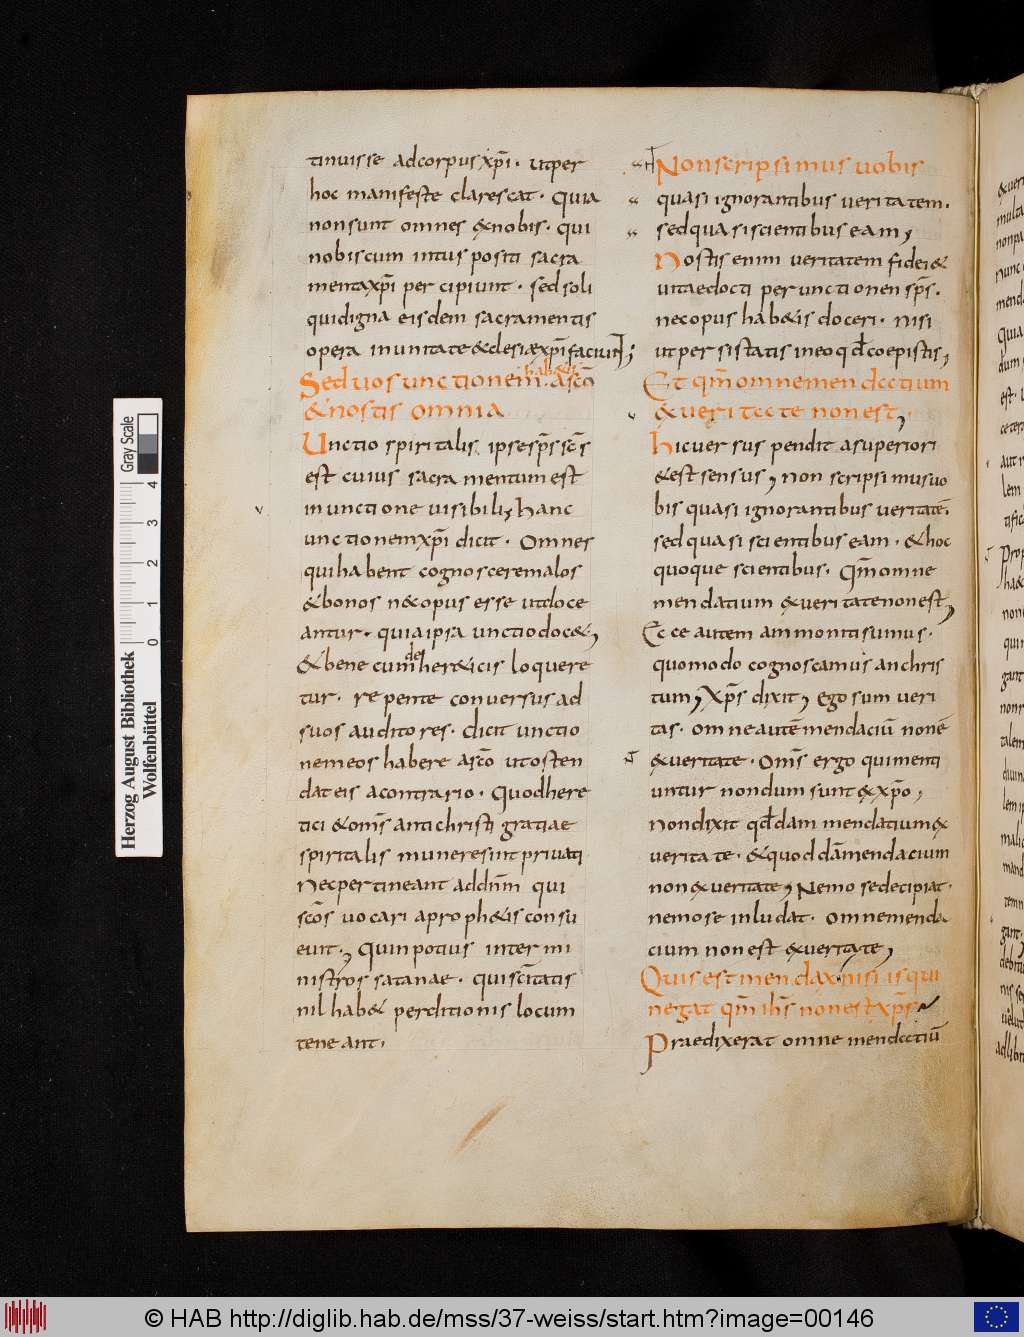 tinuisse adcorpus xp̄i. ut per
hoc manifeste clarescat. Quia
non sunt omnes & nobis. qui
nobis cum intus positi sacra
menta xp̄i percipiunt. sed soli
qui digna eisdem sacramentis
opera in unitate &clesiae xp̄i faciunt;
habetis
Sed uos unctionem. a sc̄o
& nostis omnia
Unctio spiritalis ipse sp̄s sc̄s
est cuius sacramentum est
in unctione uisibili; hanc
unctionem xp̄i dicit. Omnes
qui habent cognoscere malos
& bonos n& opus esse ut doce
antur. quia ipsa unctio doc&;
de
& bene cum her&icis loquere
tur. repente conuersus ad
suos auditores. dicit unctio
nem eos habere a sc̄o ut osten
dat eis a contrario. Quod here
tici & om̄s antichristi gratiae
spiritalis munere sint priuati
Nec pertineant ad dn̄m qui
sc̄os uocari a proph&is consu
euit; Quin potius inter mi
nistros satanae. qui sc̄itatis
nil hab& perditionis locum
teneant.
Non scripsimus uobis
quasi ignorantibus ueritatem.
sed quasi scientibus eam;
Nostis enim ueritatem fidei &
uitae docti per unctionem sp̄s.
nec opus hab&is doceri. nisi
ut persistatis in eo qđ coepistis;
Et qm̄ omne mendatium
& ueritate non est;
Hic uersus pendit a superiori
& est sensus; non scripsimus uo
bis quasi ignorantibus ueritatē.
sed quasi scientibus eam. & hoc
quoque scientibus. Qm̄ omne
mendatium & ueritate non est;
Ecce autem ammoniti sumus.
quomodo cognoscamus anchris
tum; Xp̄s dixit; Ego sum ueri
tas. omne autē mendaciū non ē
& ueritate. Om̄s ergo qui menti
untur nondum sunt & xp̄o,
Non dixit qđdam mendatium &
ueritate. & quoddā mendacium
non & ueritate; Nemo se decipiat.
nemo se inludat. omne menda
cium non est & ueritate;
Quis est mendax. nisi is qui
negat qm̄ ih̄s non est xp̄s
Praedixerat omne mendatiū
Herzog August Bibliothek
Wolfenbüttel
0 1 2 3 4
Gray Scale
© HAB http://diglib.hab.de/mss/37-weiss/start.htm?image=00146